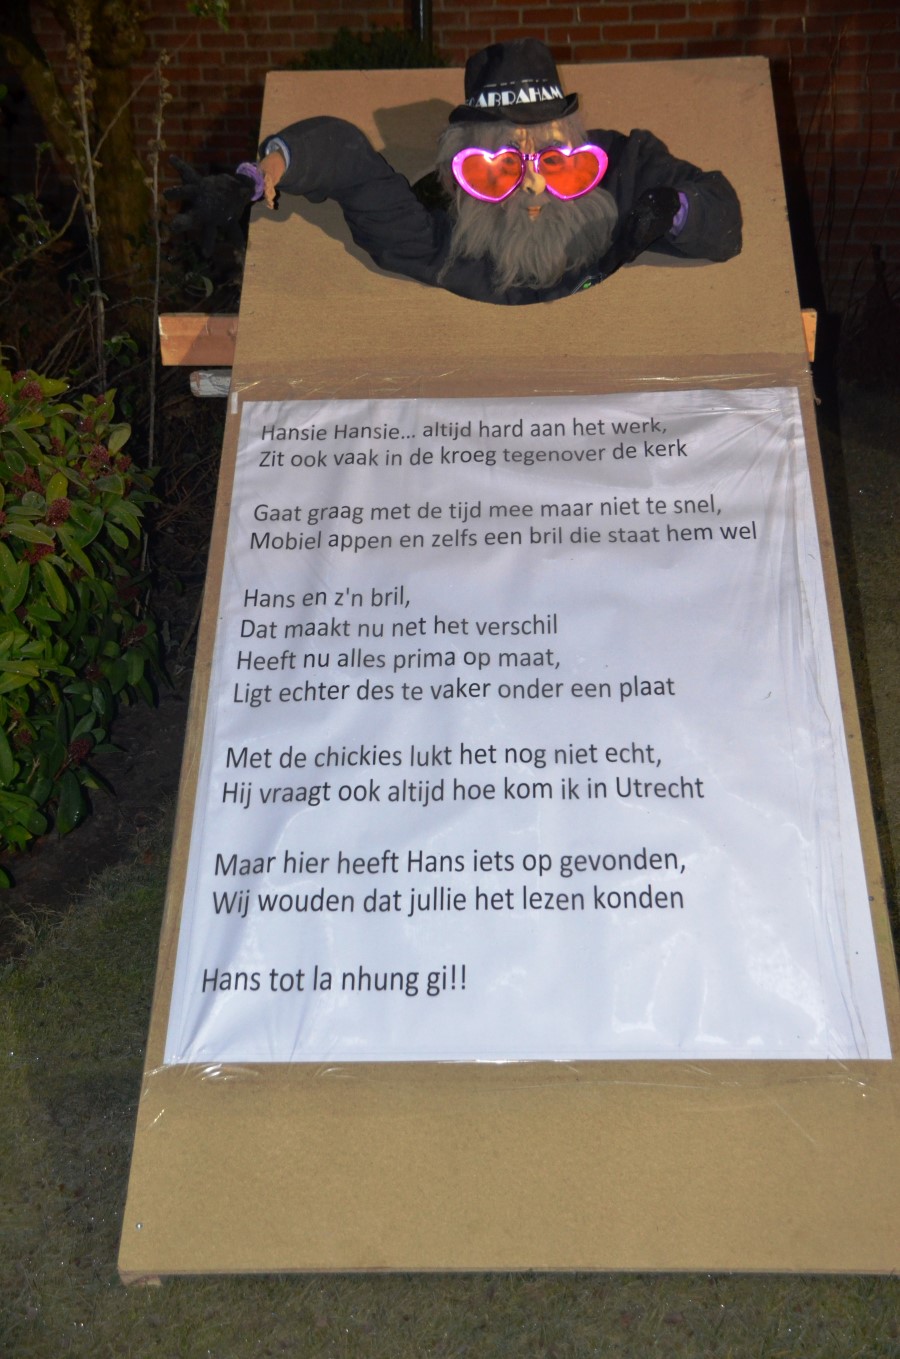 ABRAHAM
Hansie Hansie... altijd hard aan het werk,
Zit ook vaak in de kroeg tegenover de kerk
Gaat graag met de tijd mee maar niet te snel,
Mobiel appen en zelfs een bril die staat hem wel
Hans en z'n bril,
Dat maakt nu net het verschil
Heeft nu alles prima op maat,
Ligt echter des te vaker onder een plaat
Met de chickies lukt het nog niet echt,
Hij vraagt ook altijd hoe kom ik in Utrecht
Maar hier heeft Hans iets op gevonden,
Wij wouden dat jullie het lezen konden
Hans tot la nhung gi!!